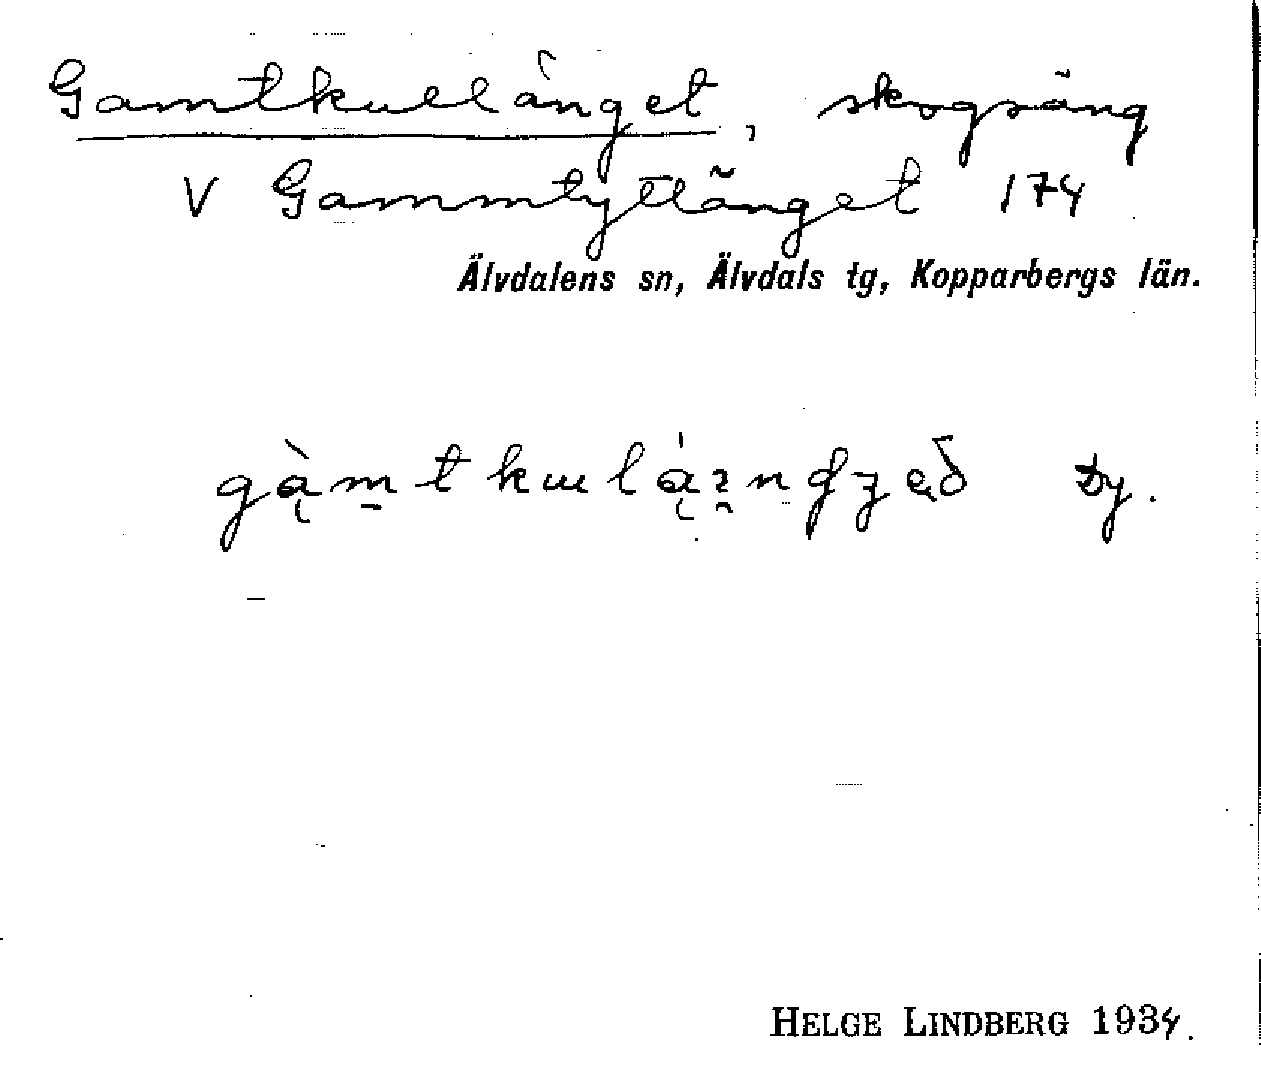 Gamtkullänget, skogsäng
V Gammtyttänget 174
Älvdalens sn, Älvdals tg, Kopparbergs län.
Dy.
HELGE LINDBERG 1934.